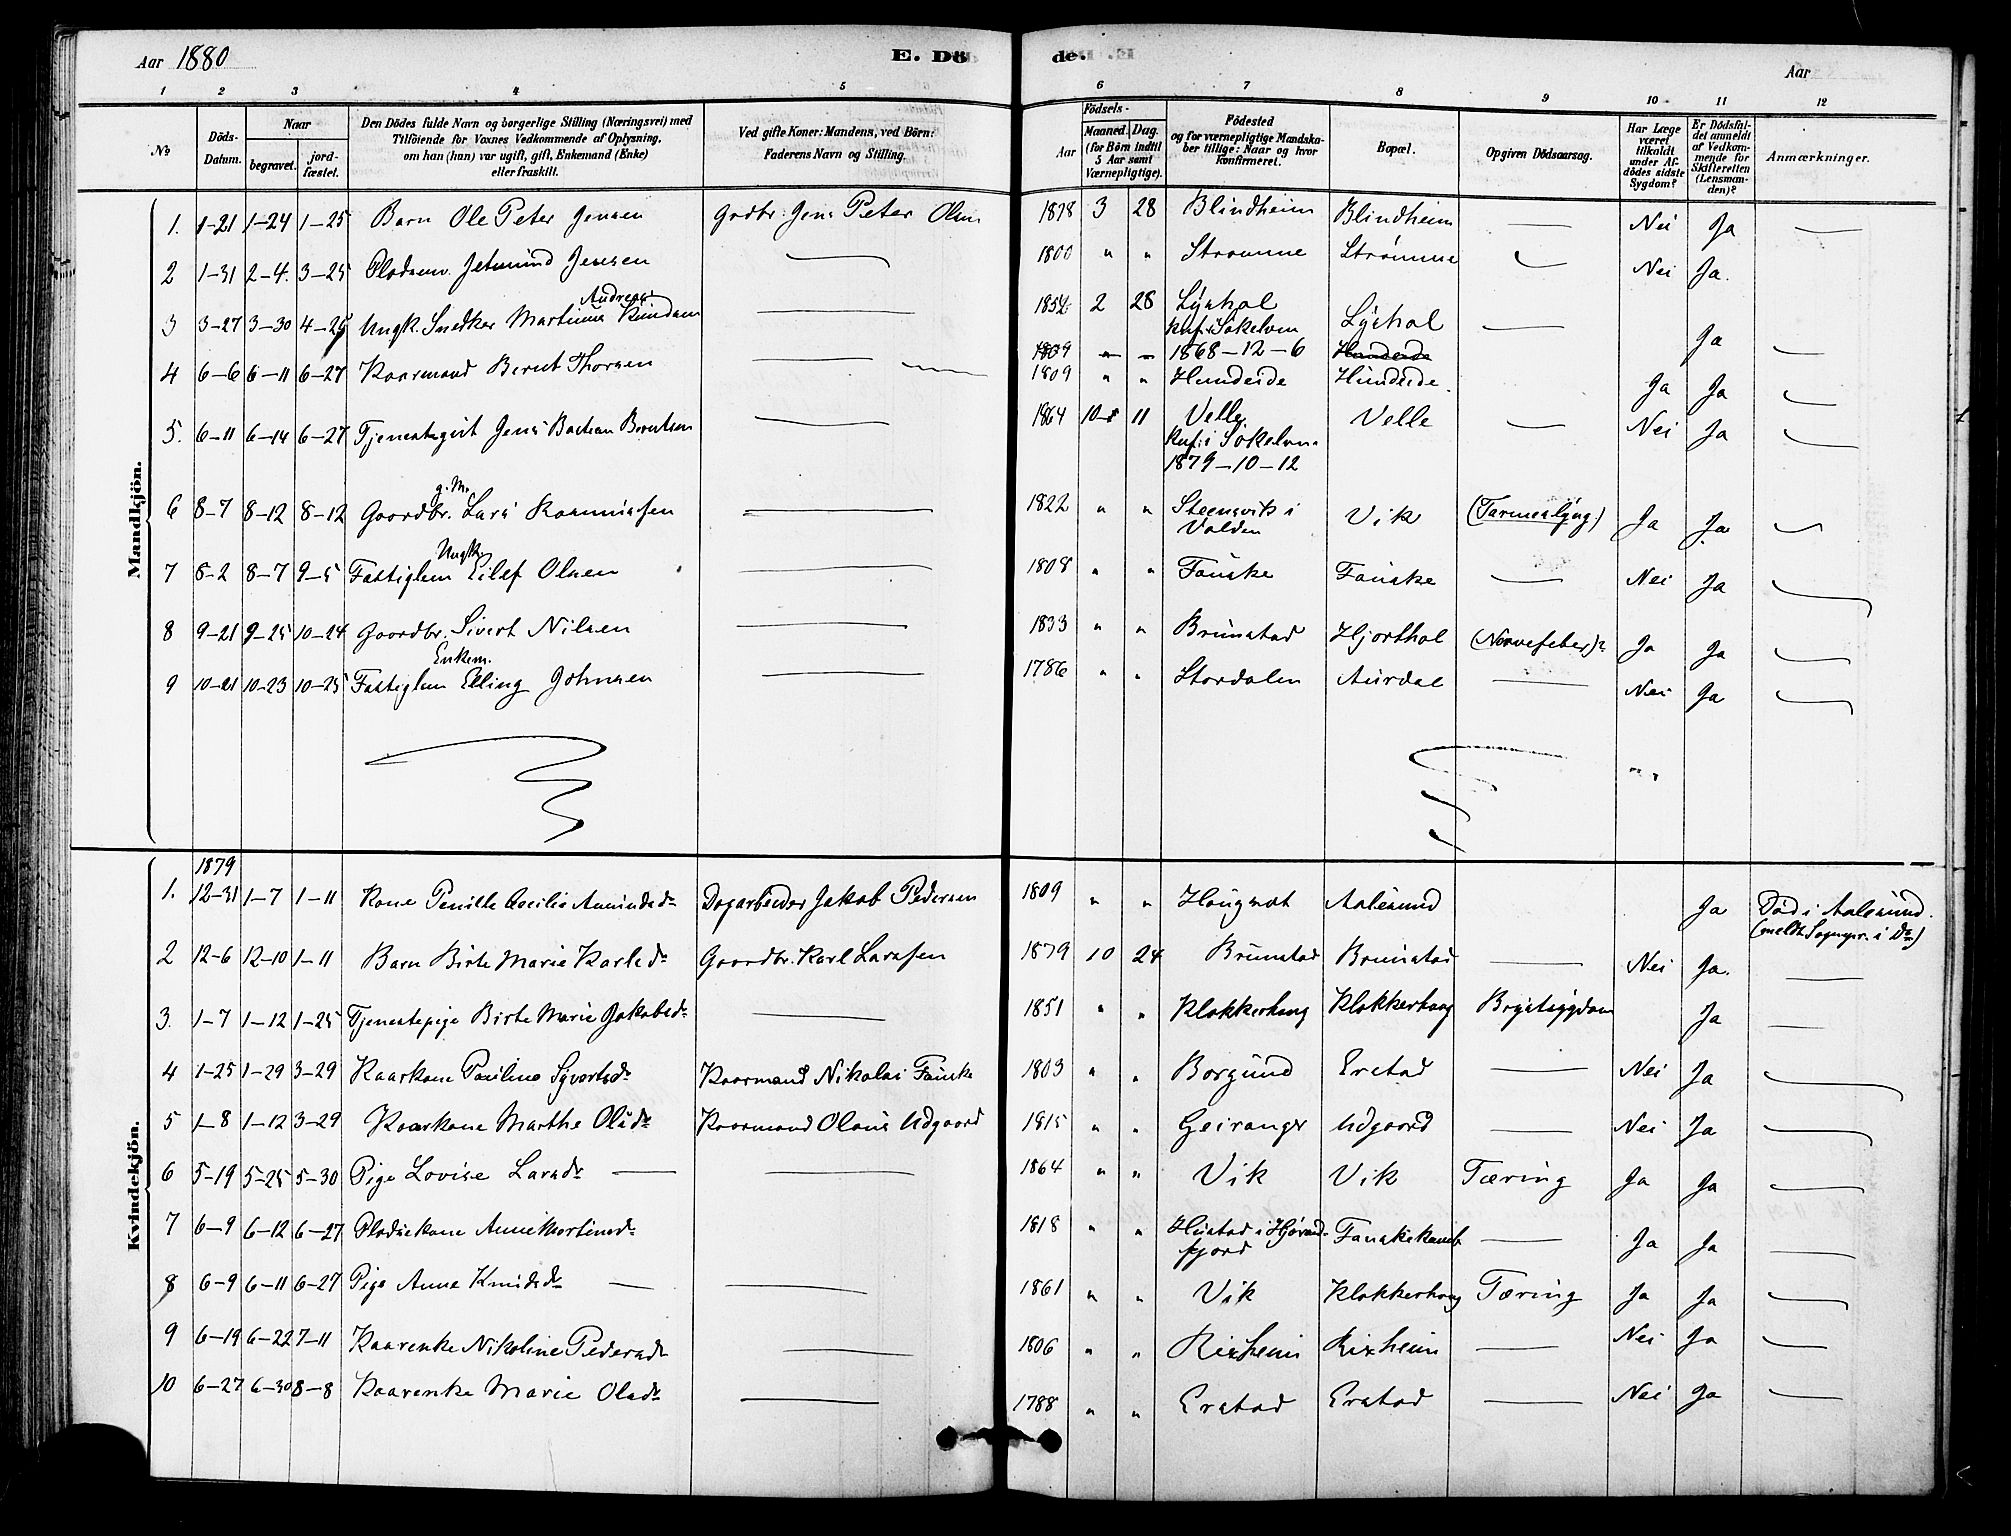 Aar 1880
E. Döde.
Aar
1 2 3 4 5 6 7 8 9 10 11 12
No
Döds-Datum.
Naar
begravet.
jord-fæstet.
Den Dödes fulde Navn og borgerlige Stilling (Næringsvei) med
Tilföiende for Voxnes Vedkommende af Oplysning,
om han (hun) var ugift, gift, Enkemand (Enke)
eller fraskilt.
Ved gifte Koner: Mandens, ved Börn:
Faderens Navn og Stilling.
Födsels-
Aar
Maaned. Dag.
(for Börn indtil
5 Aar samt
Værnepligtige).
Födested
og for værnepligtige Mandska-
ber tillige: Naar og hvor
konfirmeret.
Bopæl.
Opgiven Dödsaarsag.
Har Læge
været
tilkaldt
under Af-
dödes sidste
Sygdom?
Er Dödsfal-
det anmeldt
af Vedkom-
mende for
Skifteretten
(Lensman-
den)?
Anmærkninger.
Mandkjön.
1. 1-21 1-24 1-25 Barn Ole Peter Jensen Grdbr. Jens Peter Olsen 1878 3 28 Blindheim Blindheim — Nei Ja —
2 1-31 2-4. 3-25 Pladsm. Jetmund Jensen — 1800 " " Strømme Strømme — Nei Ja.
Andreas
3 3-27 3-30 4-25 Ungk. Snedker Martinus — 1852 2 28 Lyshol Lyshol — Ja —
Knf. i Søkelven
1809 1868-12-6 Hundeide
4 6-6 6-11 6-27 Kaarmand Bernt Thorsen — 1809 " " Hundeide Hundeide. Ja Ja —
5. 6-11 6-14 6-27 Tjenestegut Jens Bastian Berntsen — 1864 10 11 Velle Velle — Nei Ja —
Knf: i Søkelven
1879-10-12
g. M.
6 8-7 8-12 8-12 Gaardbr. Lars Rasmussen — 1822 " " Steensvik i Vik (Tarmeslyng) Ja Ja —
Volden
Ungk.
7 8-2 8-7 9-5 Fattiglem Eilef Olsen — 1808 " " Fauske Fauske — Nei Ja —
8 9-21 9-25 10-24 Gaardbr. Sivert Nilsen — 1833 " " Brunstad Hjorthol (Nervefeber)? Ja Ja —
Enkem.
9 10-21 10-23 10-25 Fattiglem Elling Johnsen — 1786 " " Stordalen Aurdal — Nei Ja —
Kvindekjön.
1879
1. 12-31 1-7 1-11 Kone Pernille Cecilie Amundsdr Dagarbeider Jakob Pedersen 1809 " " Haugnæt Aalesund Ja Død i Aalesund.
(meldt Sognepr. i Do)
2 12-6 12-10 1-11 Barn Birte Marie Karlsdr Gaardbr. Karl Larssen 1879 10 24 Brunstad Brunstad — Nei Ja. —
3. 1-7 1-12 1-25 Tjenestepige Birte Marie Jakobsdr — 1851 " " Klokkerhaug Klokkerhaug Brystsygdom Ja —
4 1-25 1-29 3-29 Kaarkone Pauline Syvertsdr Kaarmand Nikolai Fauske 1803 " " Borgund Erstad — Nei Ja —
5 1-8 1-12 3-29 Kaarkone Marthe Olsdr Kaarmand Olaus Udgaard 1815 " " Geiranger Udgaard — Nei Ja —
6 5-19 5-25 5-30 Pige Lovise Larsdr — — 1864 " " Vik Vik Tæring Ja Ja —
7 6-9 6-12 6-27 Pladsekone Anne Martinsdr 1818 " " Hustad i Hjørund- — Ja Ja —
fjord
8 6-9 6-11 6-27 Pige Anne Knudsdr — — 1861 " " Vik Klokkerhaug Tæring Ja Ja —
9 6-19 6-22 7-11 Kaarenke Nikoline Pedersdr — 1806 " " Rixheim Rixheim — Nei Ja —
10 6-27 6-30 8-8 Kaarenke Marie Olsdr — 1788 " " Erstad Erstad — Nei Ja —